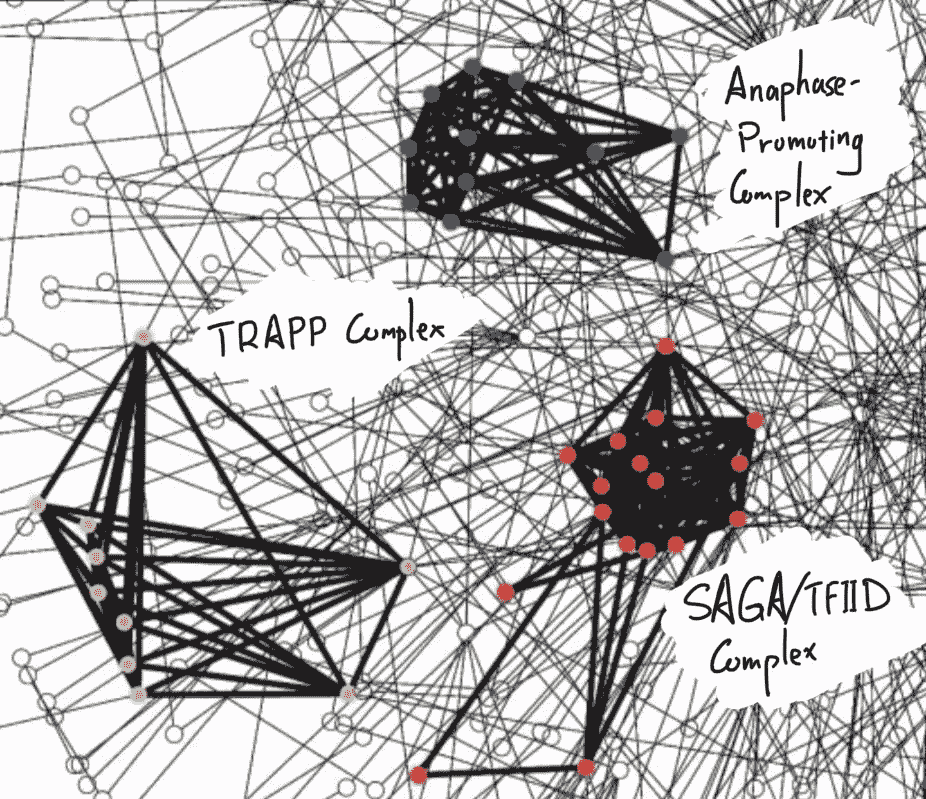 Anaphase-
Promoting
Complex
TRAPP Complex
SAGA/TFIID
Complex